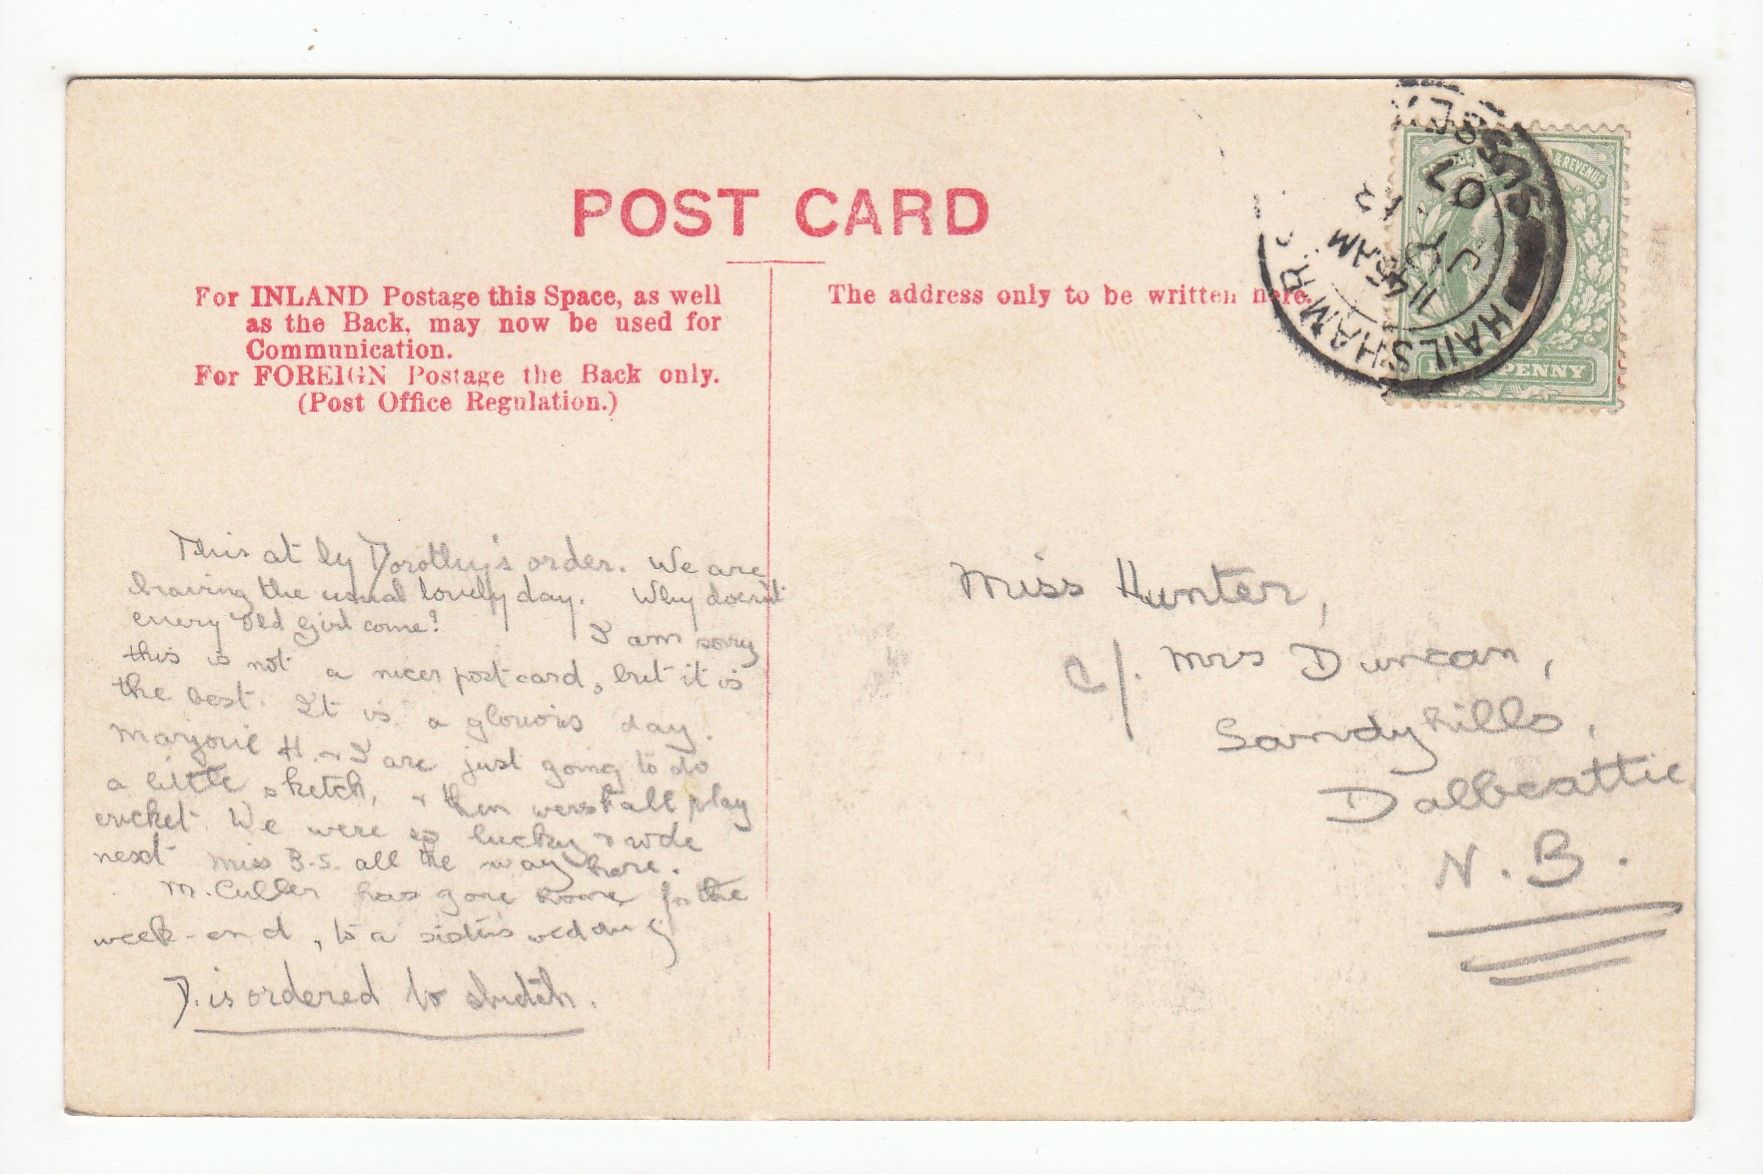 POST CARD
For INLAND Postage this Space, as well
as the Back, may now be used for
Communication.
For FOREIGN Postage the Back only.
(Post Office Regulation.)
The address only to be written here.
HAILSHAM R.S.O. SUSSEX
11 45 AM
JY 12
07
& REVENUE
PENNY
This at by Dorothy's order. We are
having the usual lovely day. Why doesn't
every old girl come? I am sorry
this is not a nicer postcard, but it is
the best. It is a glorious day.
Marjorie H. & I are just going to do
a little sketch, & then we shall play
cricket. We were so lucky & rode
next Miss B-S. all the way here.
M. Culler has gone home for the
week-end, to a sister's wedding
D. is ordered to sketch.
Miss Hunter,
c/. Mrs Duncan,
Sandyhills,
Dalbeattie,
N.B.